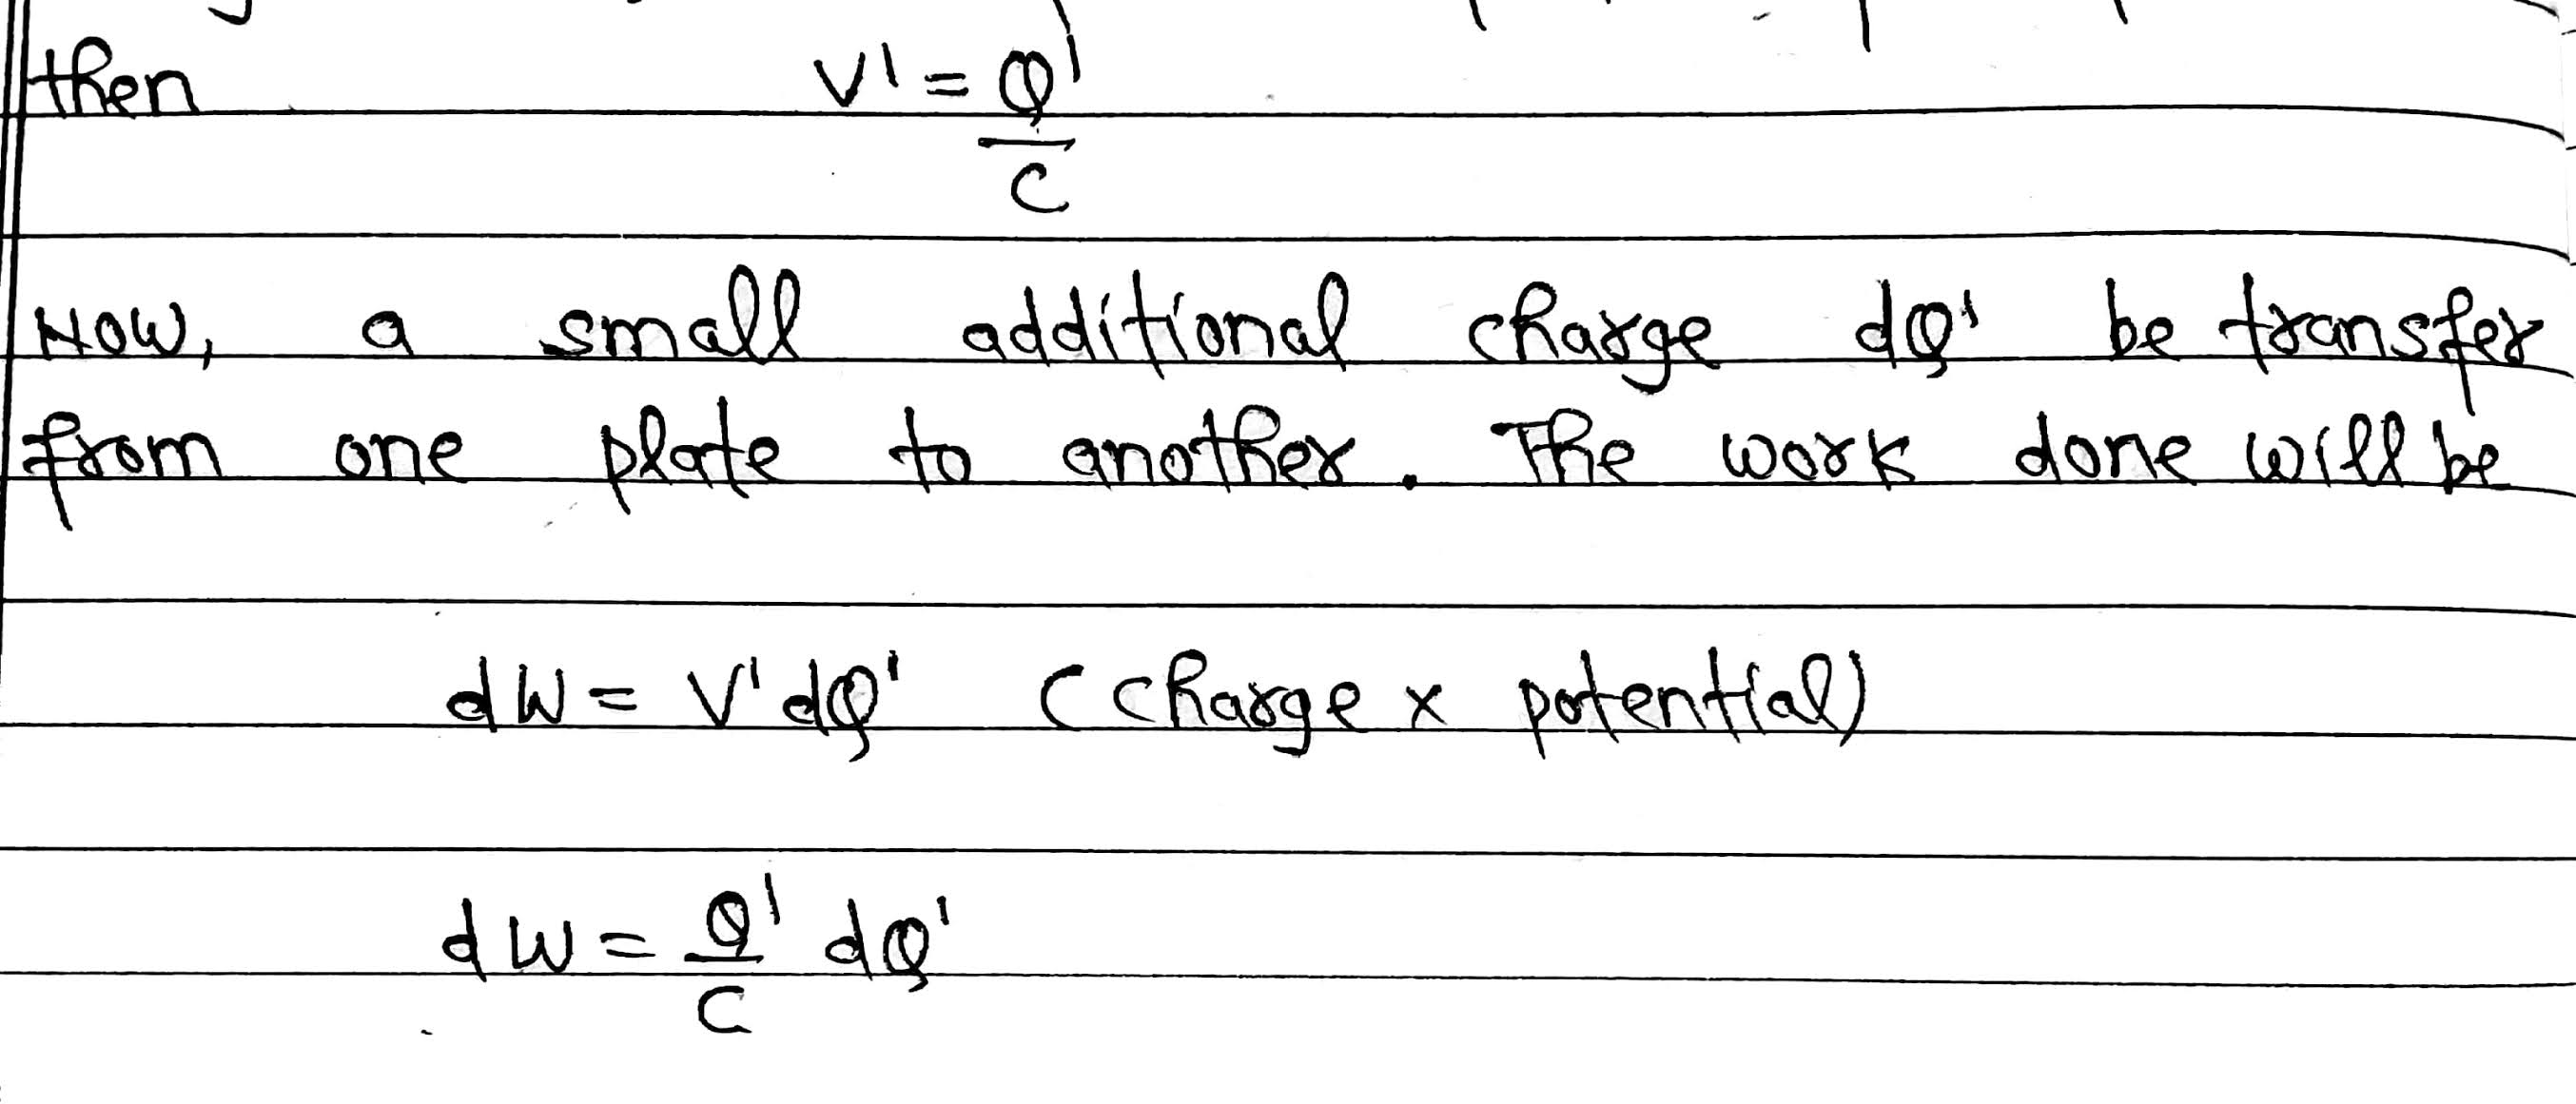 then V' = Q'/C
Now, a small additional charge dQ' be transfer
from one plate to another. The work done will be
dW = V'dQ' (charge x potential)
dW = Q'/C dQ'